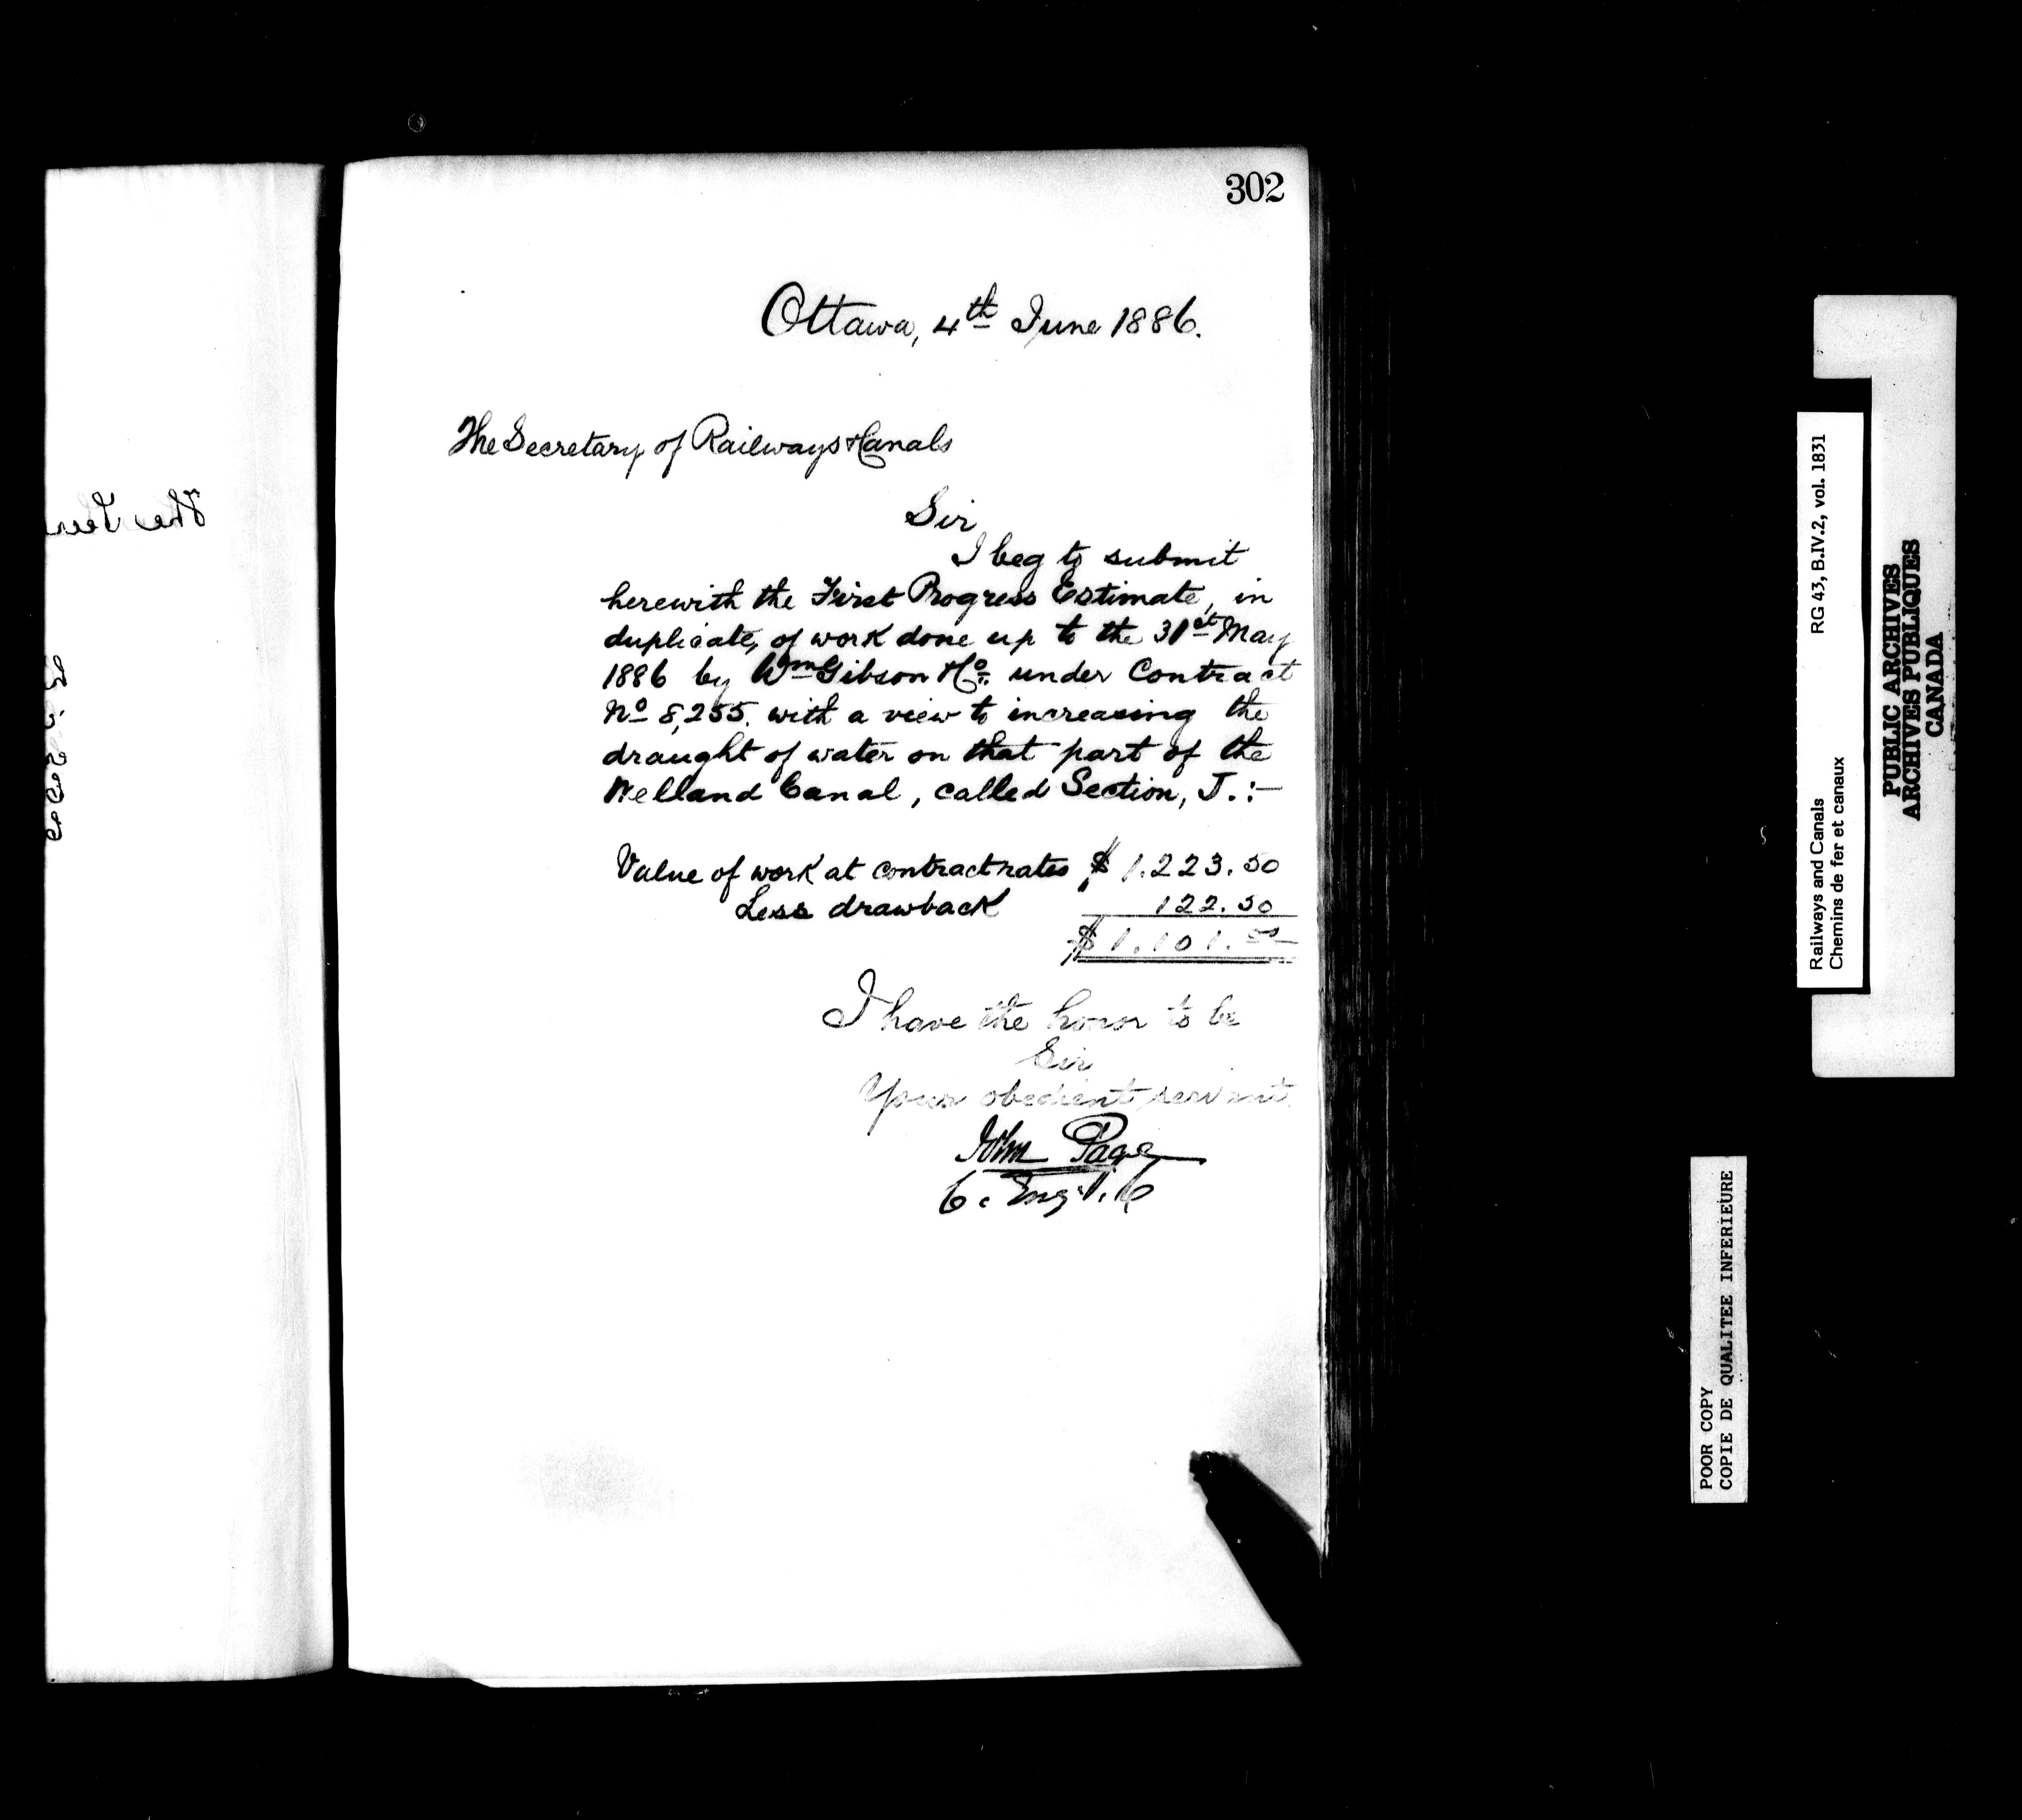 302
Ottawa, 4th June 1886.
The Secretary of Railways & Canals
Sir
I beg to submit
herewith the First Progress Estimate, in
duplicate, of work done up to the 31st May
1886 by Wm Gibson & Co. under Contract
No 8,255. with a view to increasing the
draught of water on that part of the
Welland Canal, called Section, J.:-
Value of work at contract rates $ 1.223.50
Less drawback 122.50
$ 1.101.00
I have the honor to be
Sir
Your obedient servant
John Page
C. Eng. C
Railways and Canals RG 43, B.IV.2, vol. 1831
Chemins de fer et canaux
PUBLIC ARCHIVES
ARCHIVES PUBLIQUES
CANADA
POOR COPY
COPIE DE QUALITEE INFERIEURE